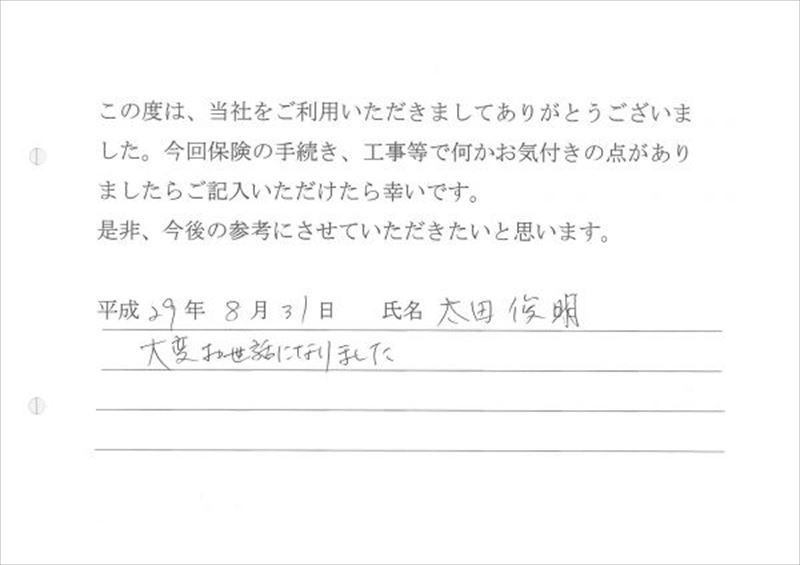 この度は、当社をご利用いただきましてありがとうございま
した。今回保険の手続き、工事等で何かお気付きの点があり
ましたらご記入いただけたら幸いです。
是非、今後の参考にさせていただきたいと思います。
平成29年 8月31日 氏名 太田俊明
大変お世話になりました